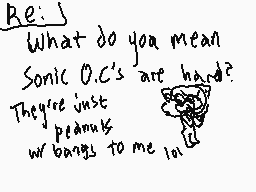 Re:
What do you mean
Sonic O.C's are hard?
They're just
peanuts
w/ bangs to me lol